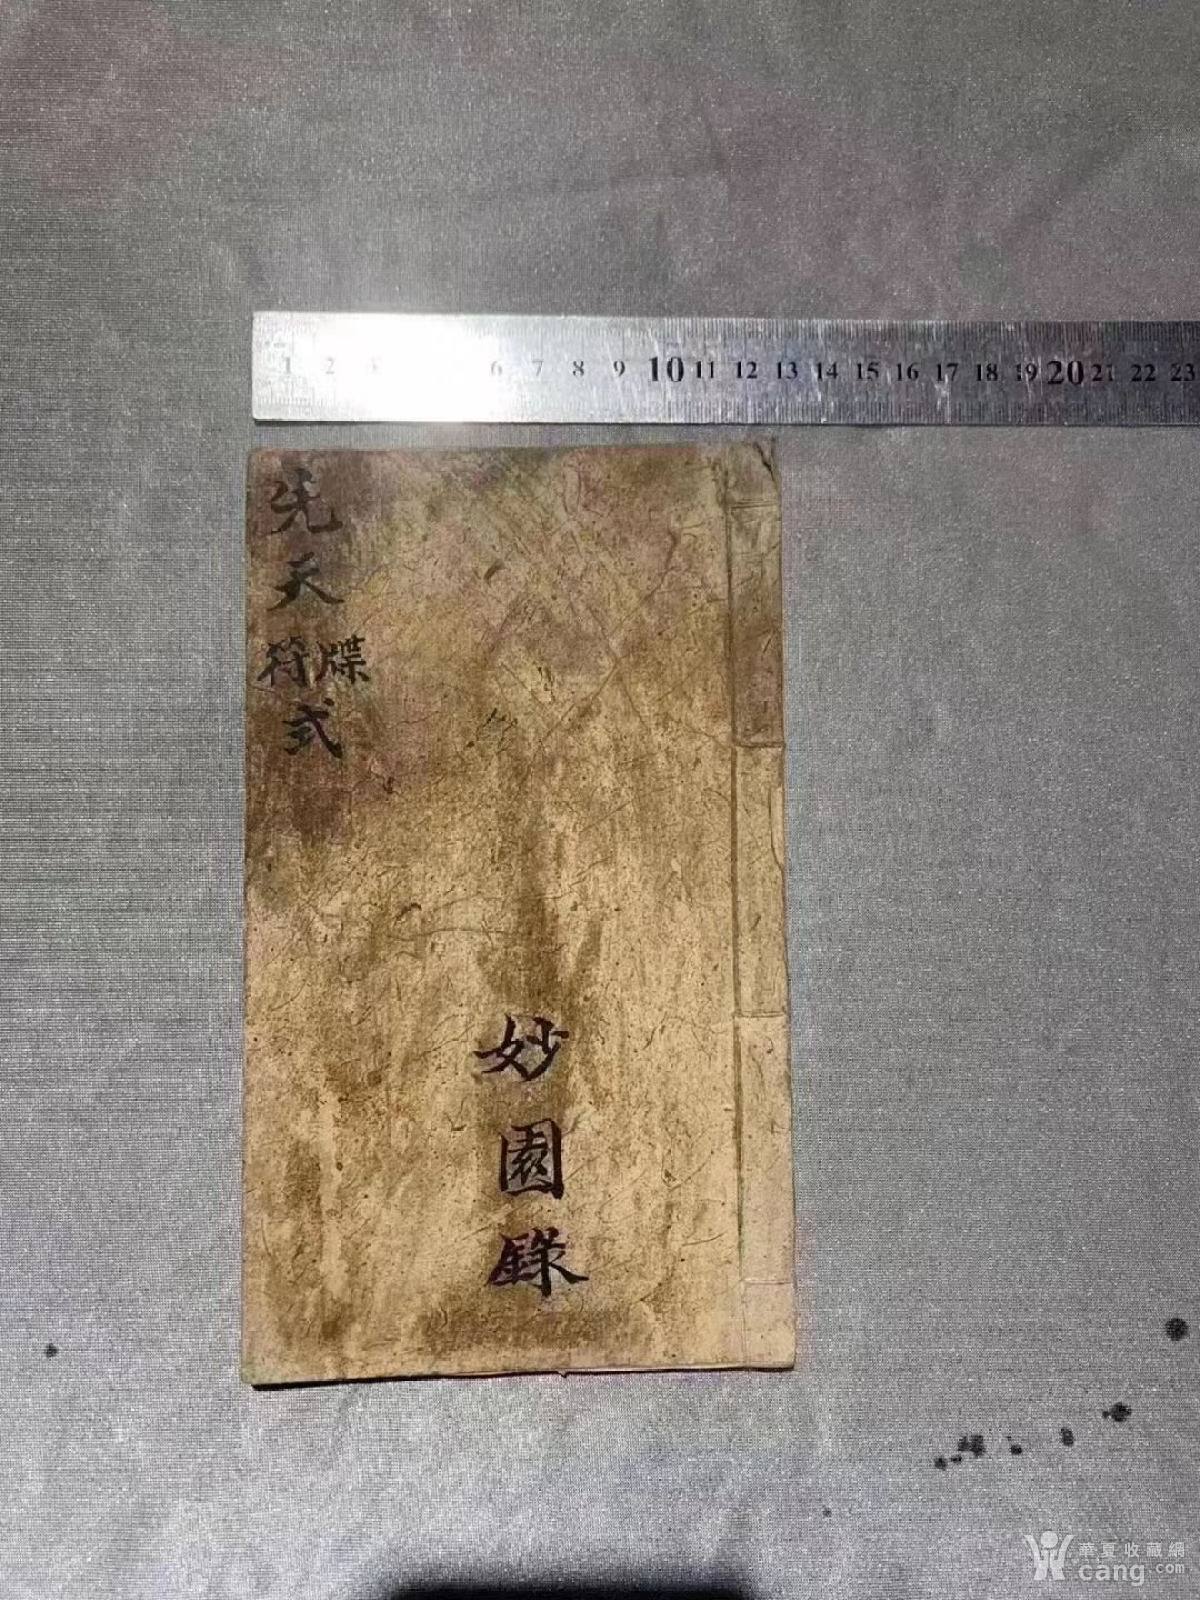 1 2 6 7 8 9 10 11 12 13 14 15 16 17 18 19 20 21 22 23
先天符牒式
妙園錄
華夏收藏網
cang.com